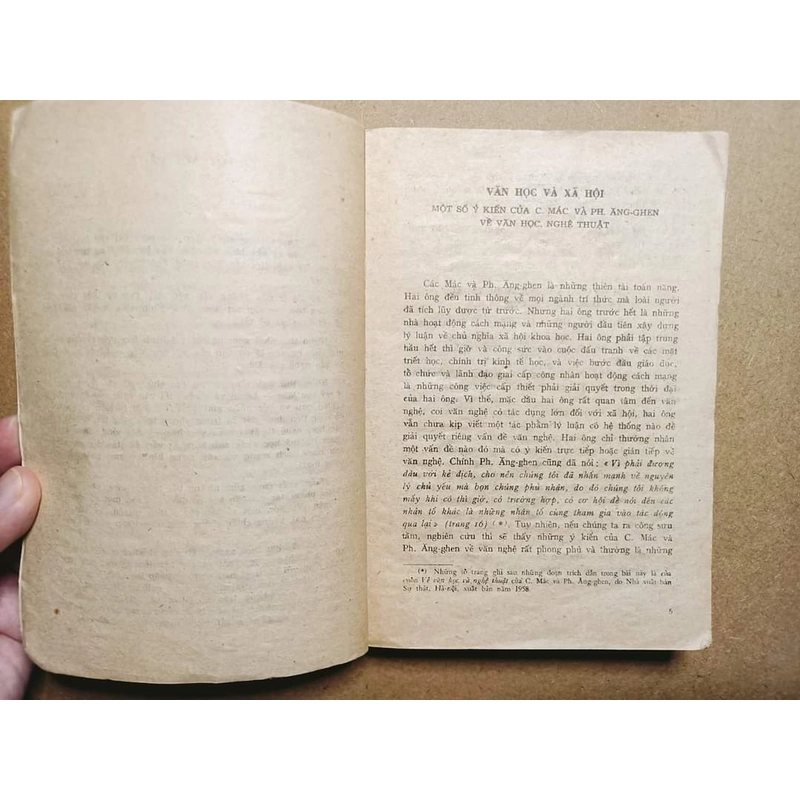 VĂN HỌC VÀ XÃ HỘI
MỘT SỐ Ý KIẾN CỦA C. MÁC VÀ PH. ĂNG-GHEN
VỀ VĂN HỌC, NGHỆ THUẬT
Các Mác và Ph. Ăng-ghen là những thiên tài toàn năng.
Hai ông đến tinh thông về mọi ngành tri thức mà loài người
đã tích lũy được từ trước. Nhưng hai ông trước hết là những
nhà hoạt động cách mạng và những người đầu tiên xây dựng
lý luận về chủ nghĩa xã hội khoa học. Hai ông phải tập trung
hầu hết thì giờ và công sức vào cuộc đấu tranh về các mặt
triết học, chính trị kinh tế học, và việc bước đầu giáo dục,
tổ chức và lãnh đạo giai cấp công nhân hoạt động cách mạng
là những công việc cấp thiết phải giải quyết trong thời đại
của hai ông. Vì thế, mặc dầu hai ông rất quan tâm đến văn
nghệ, coi văn nghệ có tác dụng lớn đối với xã hội, hai ông
vẫn chưa kịp viết một tác phẩm lý luận có hệ thống nào để
giải quyết riêng vấn đề văn nghệ. Hai ông chỉ thường nhân
một vấn đề nào đó mà có ý kiến trực tiếp hoặc gián tiếp về
văn nghệ. Chính Ph. Ăng-ghen cũng đã nói : « Vì phải đương
đầu với kẻ địch, cho nên chúng tôi đã nhấn mạnh về nguyên
lý chủ yếu mà bọn chúng phủ nhận, do đó chúng tôi không
mấy khi có thì giờ, có trường hợp, có cơ hội để nói đến các
nhân tố khác là những nhân tố cùng tham gia vào tác động
qua lại » (trang 16) (*). Tuy nhiên, nếu chúng ta ra công sưu
tầm, nghiên cứu thì sẽ thấy những ý kiến của C. Mác và
Ph. Ăng-ghen về văn nghệ rất phong phú và thường là những
(*) Những số trang ghi sau những đoạn trích dẫn trong bài này là của
cuốn Về văn học và nghệ thuật của C. Mác và Ph. Ăng-ghen, do Nhà xuất bản
Sự thật, Hà-nội, xuất bản năm 1958.